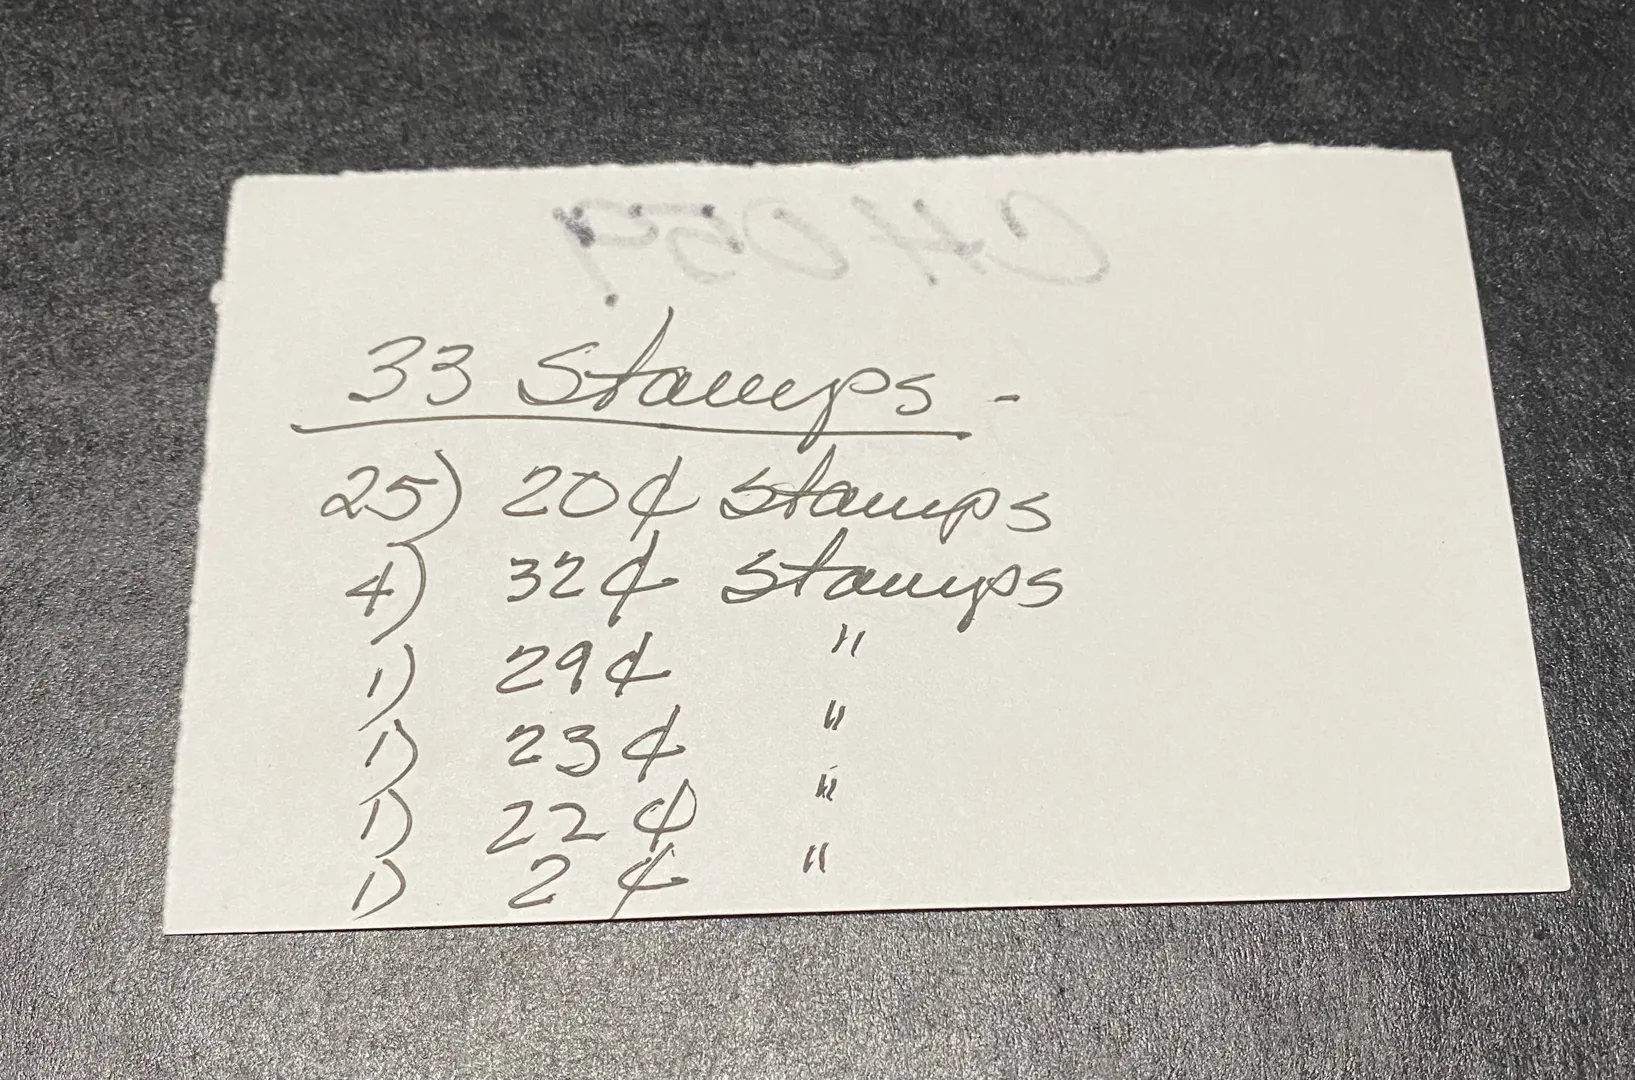 CH057
33 Stamps -
25) 20¢ stamps
4) 32¢ stamps
1) 29¢ "
1) 23¢ "
1) 22¢ "
1) 2¢ "